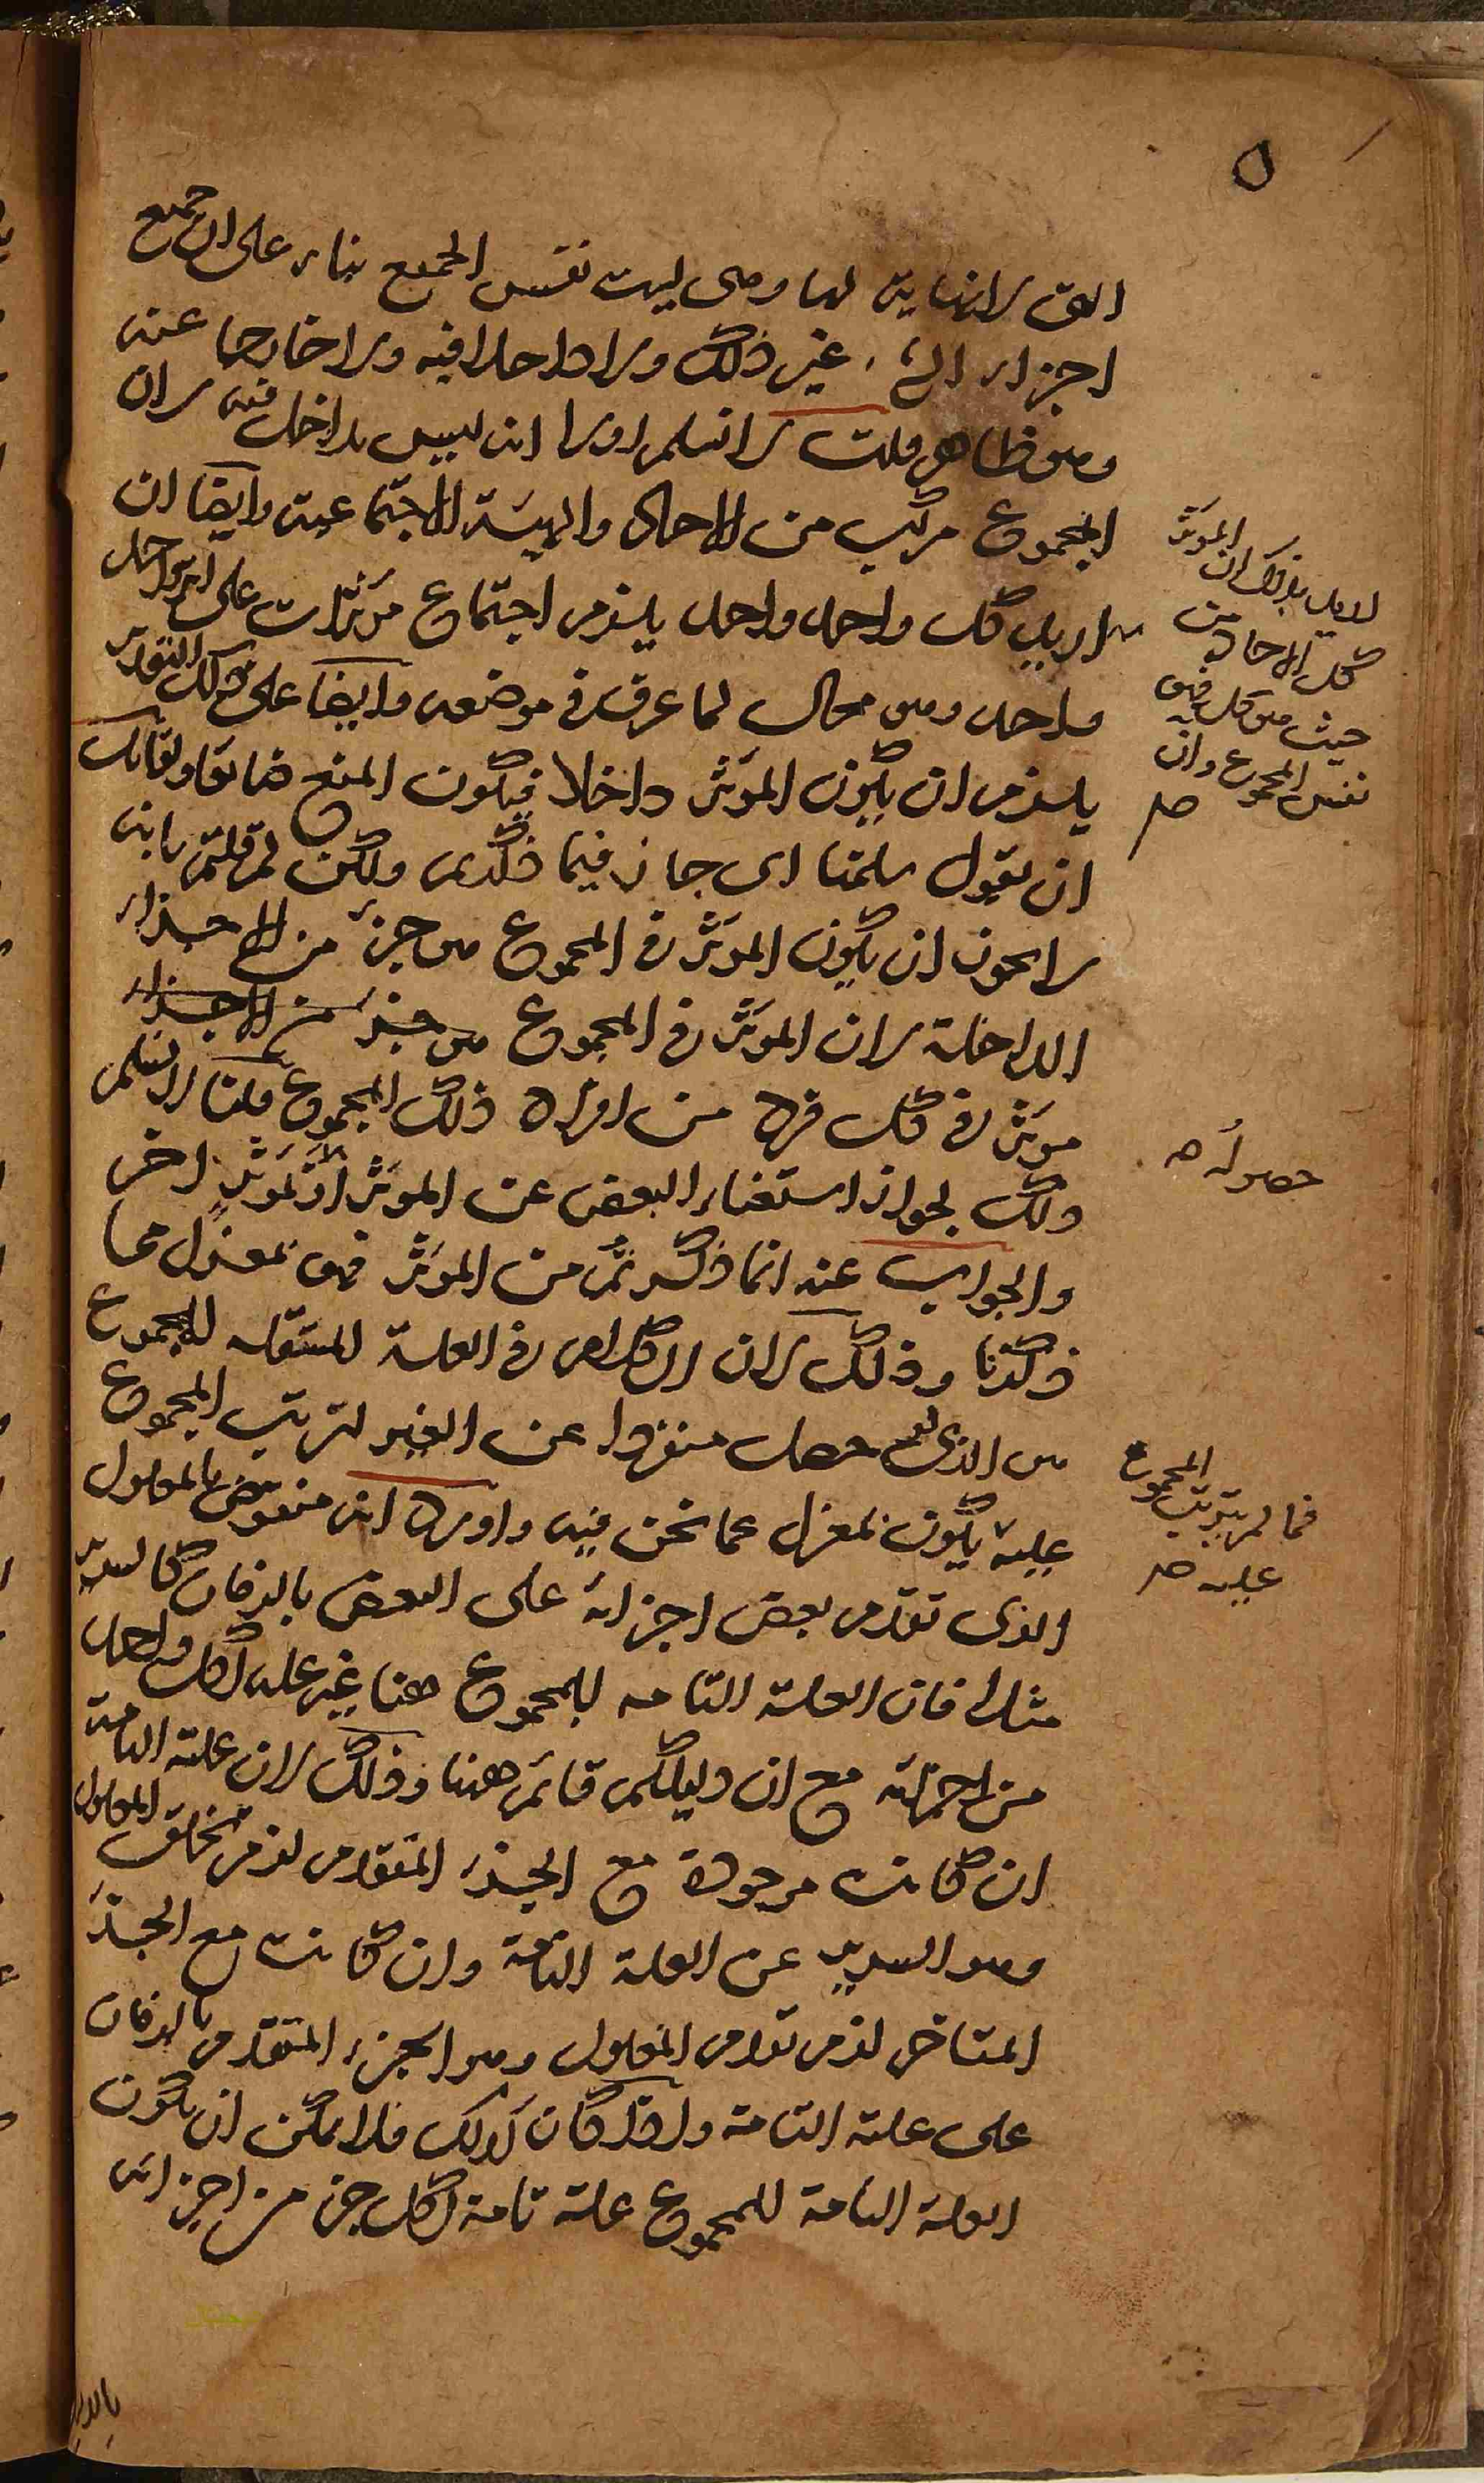 ٥
التى لانهاية لها وهى ليست نفس الجميع بناء على ان جميع
اجزاء الشئ غير ذلك ولا داخلا فيه ولا خارجا عنه
وهو ظاهر قلت لا نسلم اولا انه ليس بداخل فيه لان
المجموع مركب من الاحاد والهيئة الاجتماعية وايضا ان
اريد كل واحد واحد يلزم اجتماع مؤثرات على اثر واحد
واحد وهو محال لما عرف فى موضعه وايضا على ذلك التقدير
يلزم ان يكون المؤثر داخلا فيكون المنع ولقائل
ان يقول سلمنا اى جاز فيما ذكرتم ولكن لم قلتم بانه
لا يجوز ان يكون المؤثر فى المجموع هو جزء من الاجزاء
الداخلة لان المؤثر فى المجموع هو جزء من الاجزاء
مؤثر فى كل فرد من افراد ذلك المجموع قلنا لا نسلم
ذلك لجواز استغناء البعض عن المؤثر او لمؤثر اخر
والجواب عنه انما ذكرتم من المؤثر فهو بمعزل عما
ذكرنا وذلك لان الكلام فى العلة المستقلة للمجموع
هو الذى لو حصل منفردا عن الغير لترتب المجموع
عليه يكون بمعزل عما نحن فيه واورد انه منقوض بالمعلول
الذى تقدم بعض اجزائه على البعض بالزمان كالسرير
مثلا فان العلة التامة للمجموع هنا غير علة لكل واحد
من اجزائه مع ان دليلكم قائم ههنا وذلك لان علته التامة
ان كانت موجودة مع الجزء المتقدم لزم تخلف المعلول
وهو السرير عن العلة التامة وان كانت مع الجزء
المتاخر لزم تقدم المعلول وهو الجزء المتقدم بالزمان
على علته التامة واذا كان كذلك فلا يمكن ان يكون
العلة التامة للمجموع علة تامة لكل جزء من اجزائه
المؤثر
بذلك ان
كل الاحاد من
حيث هو كل فهو
نفس المجموع وان
صح
حصوله صح
المجموع
فما لم يترتب
عليه صح